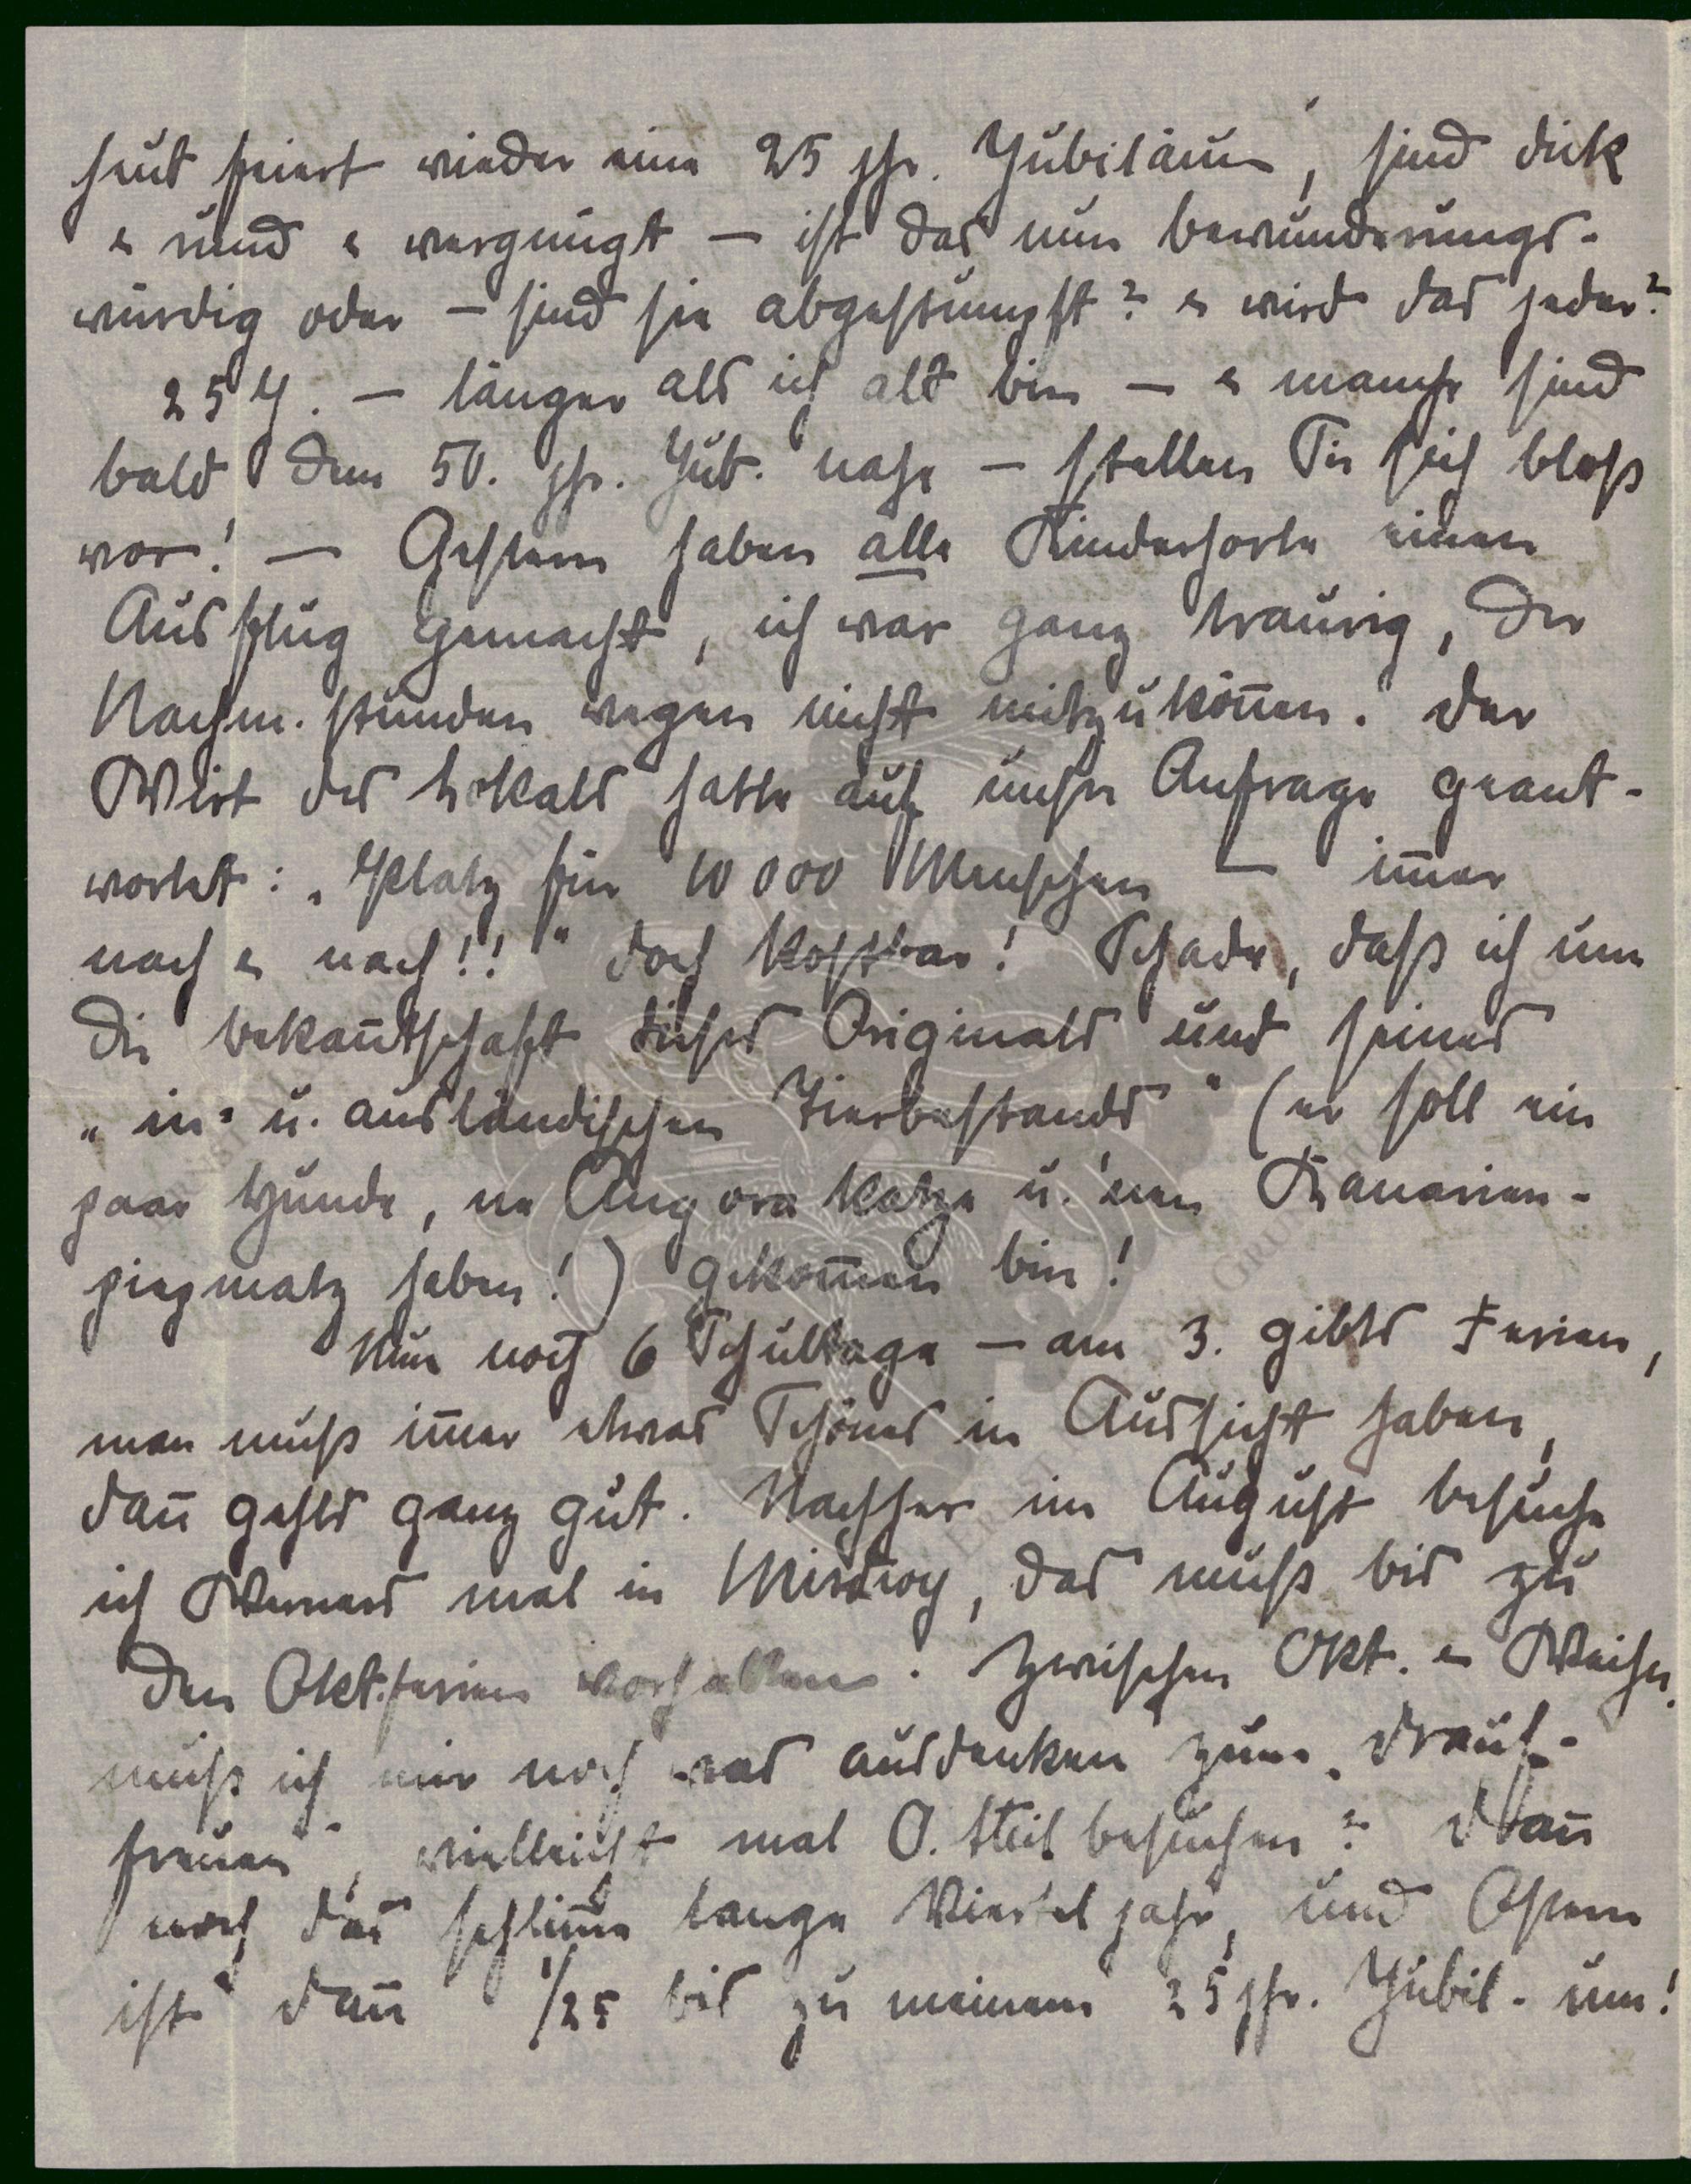 heut feiert wieder eine 25 jhr. Jubiläum, sind dick
& rund & vergnügt — ist das nun bewunderungs-
würdig oder — sind sie abgestumpft? & wird das jeder?
25 J. — länger als ich alt bin — & manche sind
bald dem 50. jhr. Jub. nahe — stellen Sie sich bloß
vor! — Gestern haben alle Kinderhorte einen
Ausflug gemacht, ich war ganz traurig, der
Nachm. stunden wegen nicht mitzukönnen. Der
Wirt des Lokals hatte auf unsre Anfrage geant-
wortet: „Platz für 10 000 Menschen — immer
nach & nach!!" doch kostbar! Schade, daß ich um
die Bekanntschaft dieses Originals und seines
„in- u. ausländischen Tierbestands" (er soll ein
paar Hunde, ne Angora Katze u. 'nen Kanarien-
piepmatz haben!) gekommen bin!
Nun noch 6 Schultage — am 3. gibts Ferien,
man muß immer etwas Schönes in Aussicht haben,
dann gehts ganz gut. Nachher im August besuche
ich Werners mal in Misdroy, das muß bis zu
den Okt.ferien vorhalten. Zwischen Okt. & Weihn.
muß ich mir noch was ausdenken zum „Drauf-
freuen", vielleicht mal O. besuchen? Dann
noch das schlimme lange Vierteljahr, und Ostern
ist dann 1/25 bis zu meinem 25 jhr. Jubil. um!